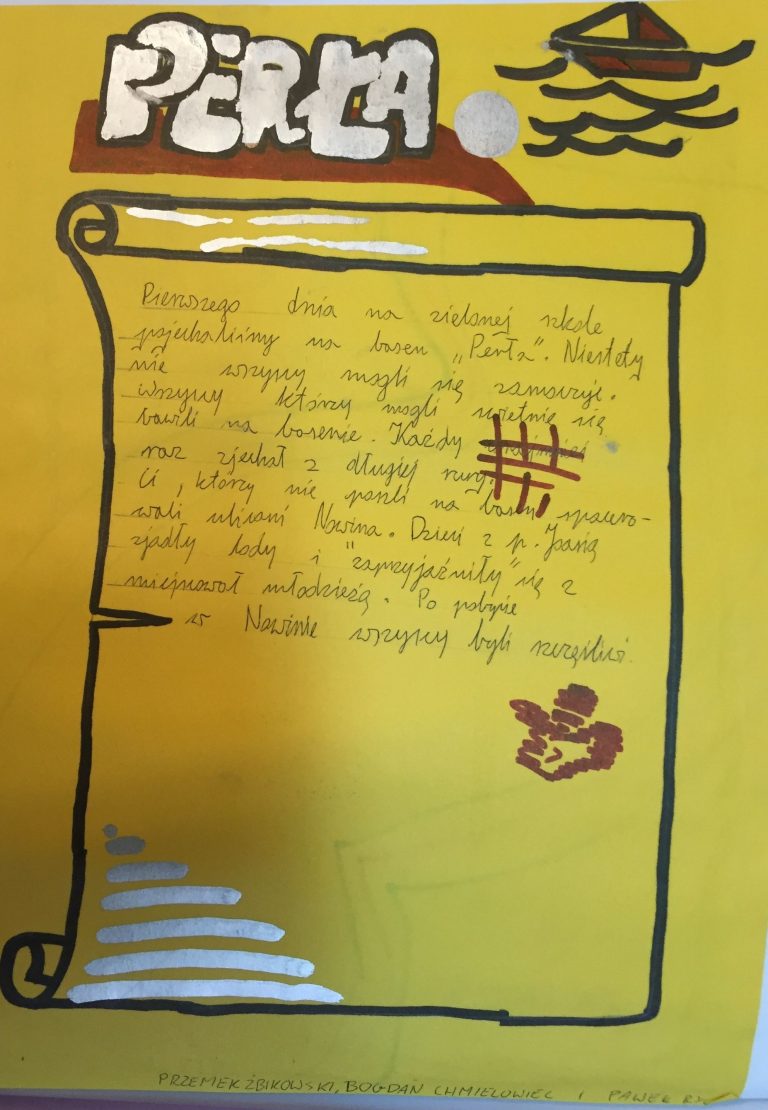 PERŁA
Pierwszego dnia na zielonej szkole
pojechaliśmy na basen „Perła". Niestety
nie wszyscy mogli się zamoczyć.
wszyscy którzy mogli świetnie się
bawili na basenie. Każdy
raz zjechał z długiej rury.
Ci, którzy nie poszli na basen spacero-
wali ulicami Nowina. Dzieci z p. Joasią
zjadły lody i "zaprzyjaźniły" się z
miejscową młodzieżą. Po pobycie
w Nowinie wszyscy byli szczęśliwi.
PRZEMEK ŻBIKOWSKI, BOGDAN CHMIELOWIEC I PAWEŁ